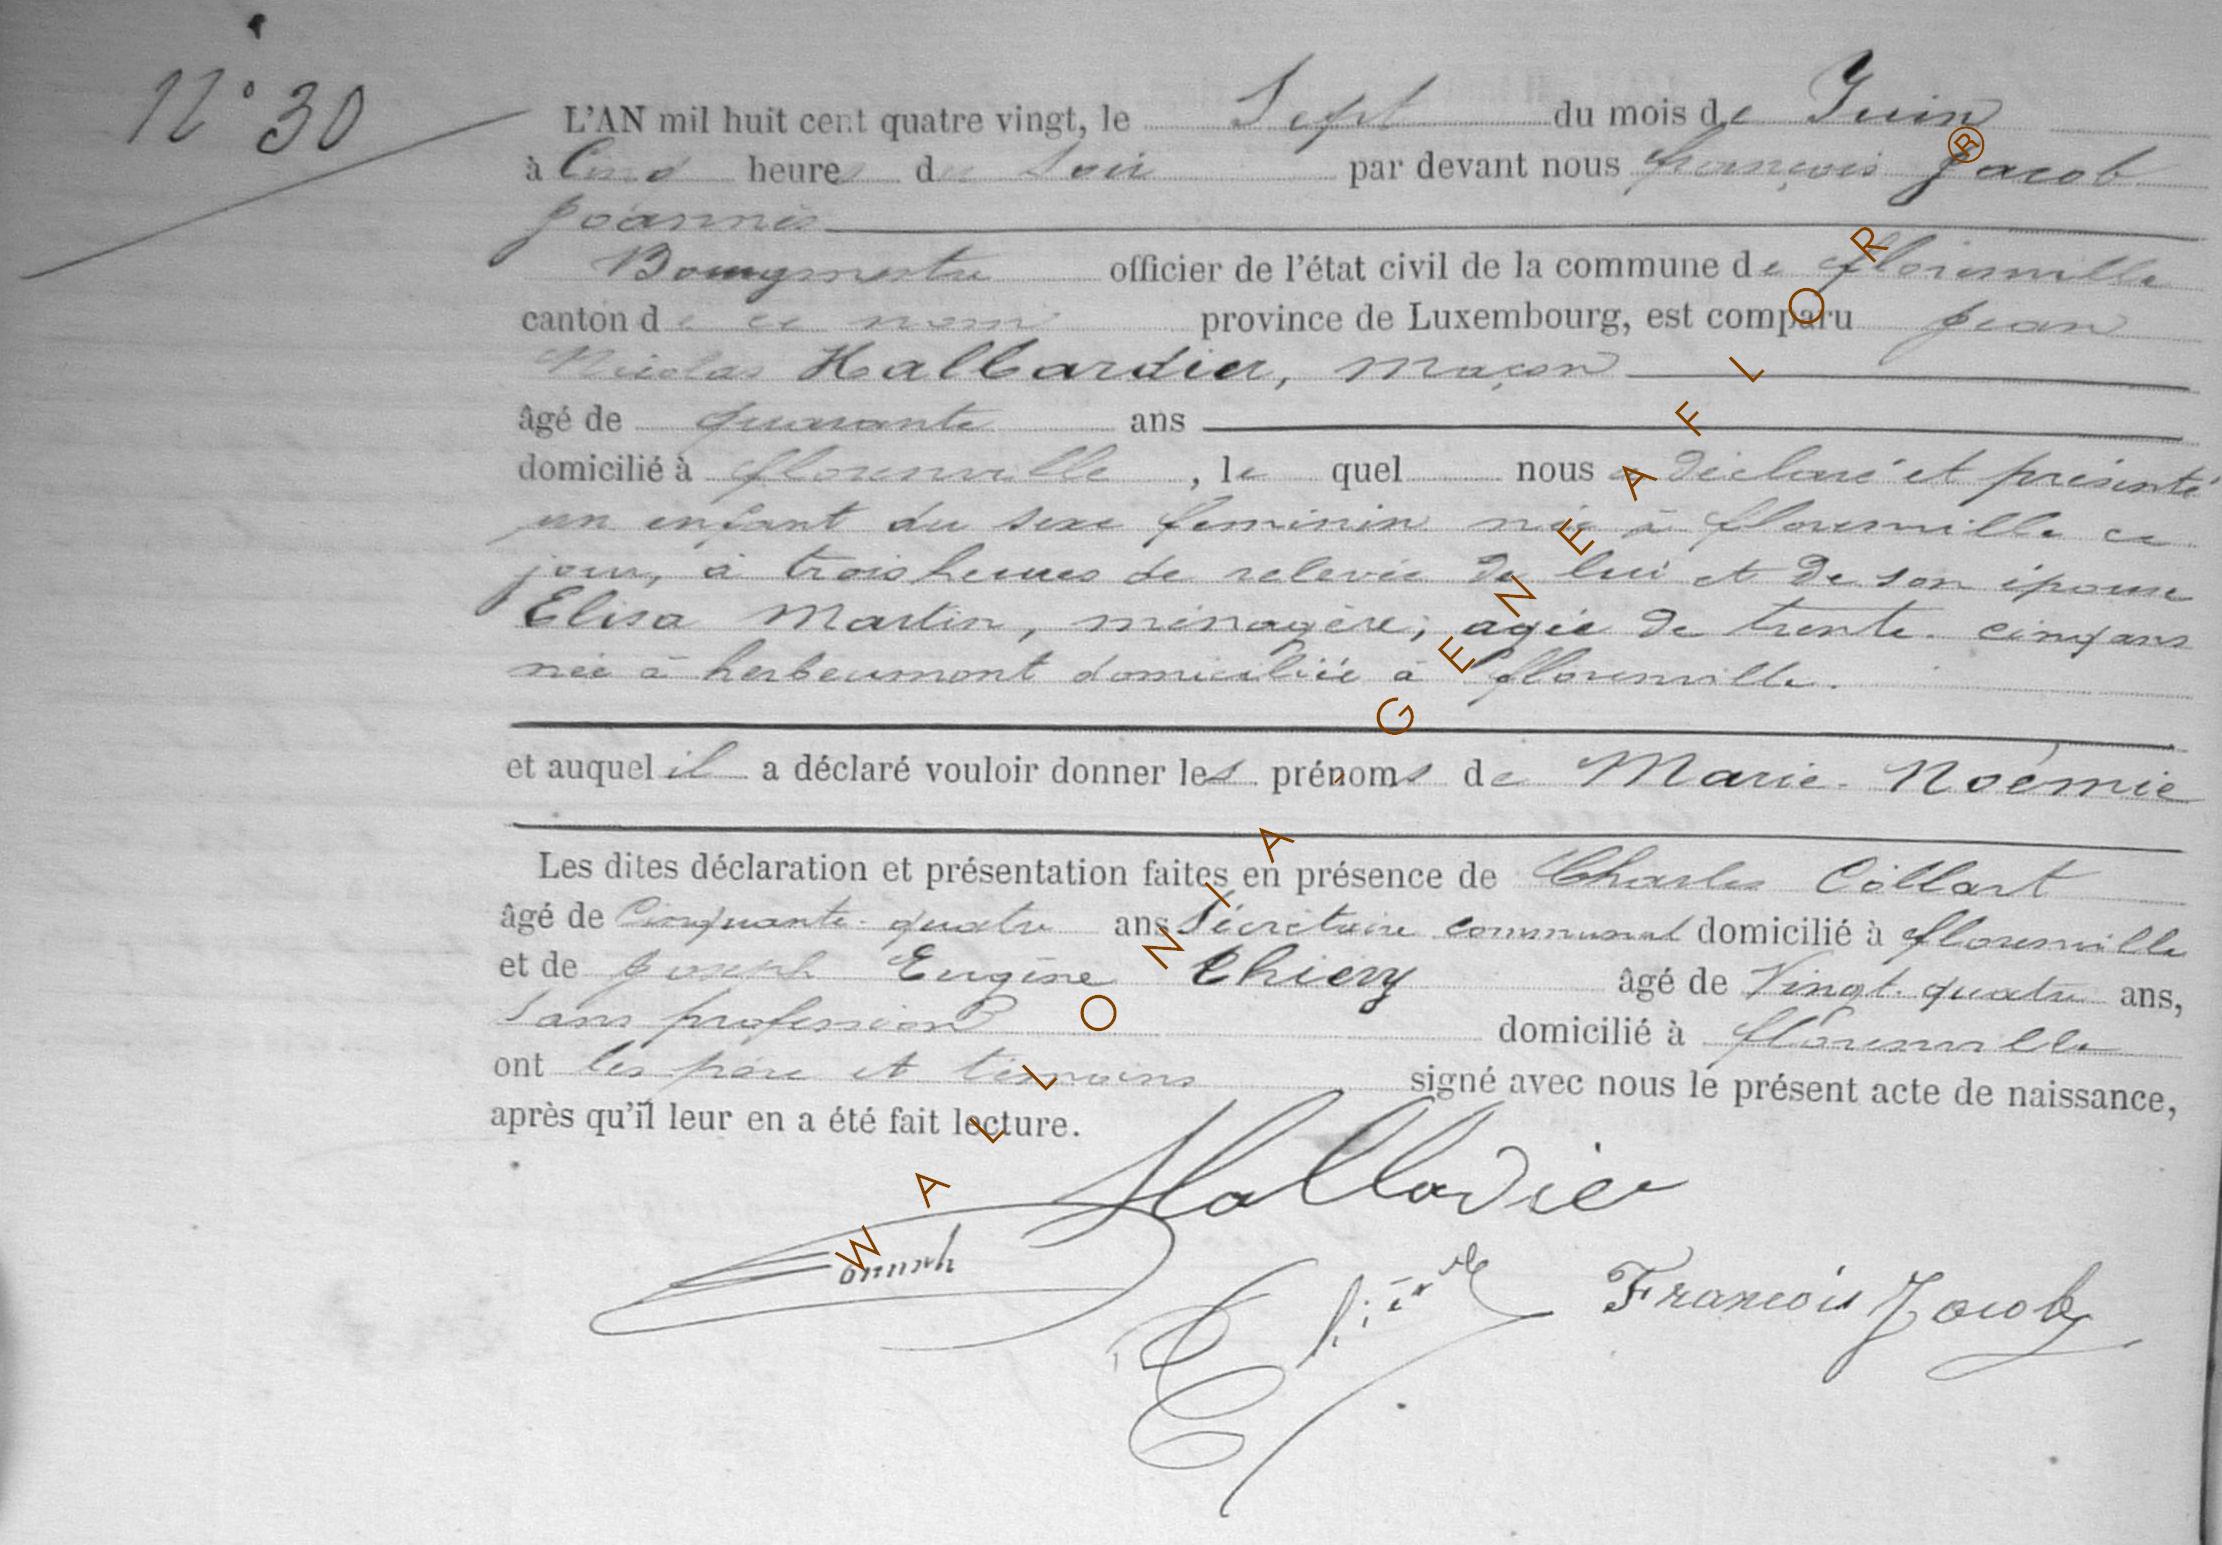 N° 30
L'AN mil huit cent quatre vingt, le Sept du mois de Juin
à Cinq heures du Soir par devant nous françois Jacob
Joannès
Bourgmestre officier de l'état civil de la commune de florenville
canton de ce nom province de Luxembourg, est comparu Jean
Nicolas Hallbardier, Maçon
âgé de quarante ans
domicilié à florenville, le quel nous a déclaré et présenté
un enfant du sexe féminin née à florenville ce
jour, à trois heures de relevée de lui et de son épouse
Elisa Martin, ménagère, agée de trente-cinq ans
née à herbeumont domiciliée à florenville.
et auquel il a déclaré vouloir donner les prénoms de Marie-Noémie
Les dites déclaration et présentation faites en présence de Charles Collart
âgé de Cinquante-quatre ans Sécrétaire communal domicilié à florenville
et de Joseph Eugène Thiery âgé de Vingt-quatre ans,
Sans profession domicilié à florenville
ont les père et témoins signé avec nous le présent acte de naissance,
après qu'il leur en a été fait lecture.
François Jacob
WALLONIA GENEAFLOR ®